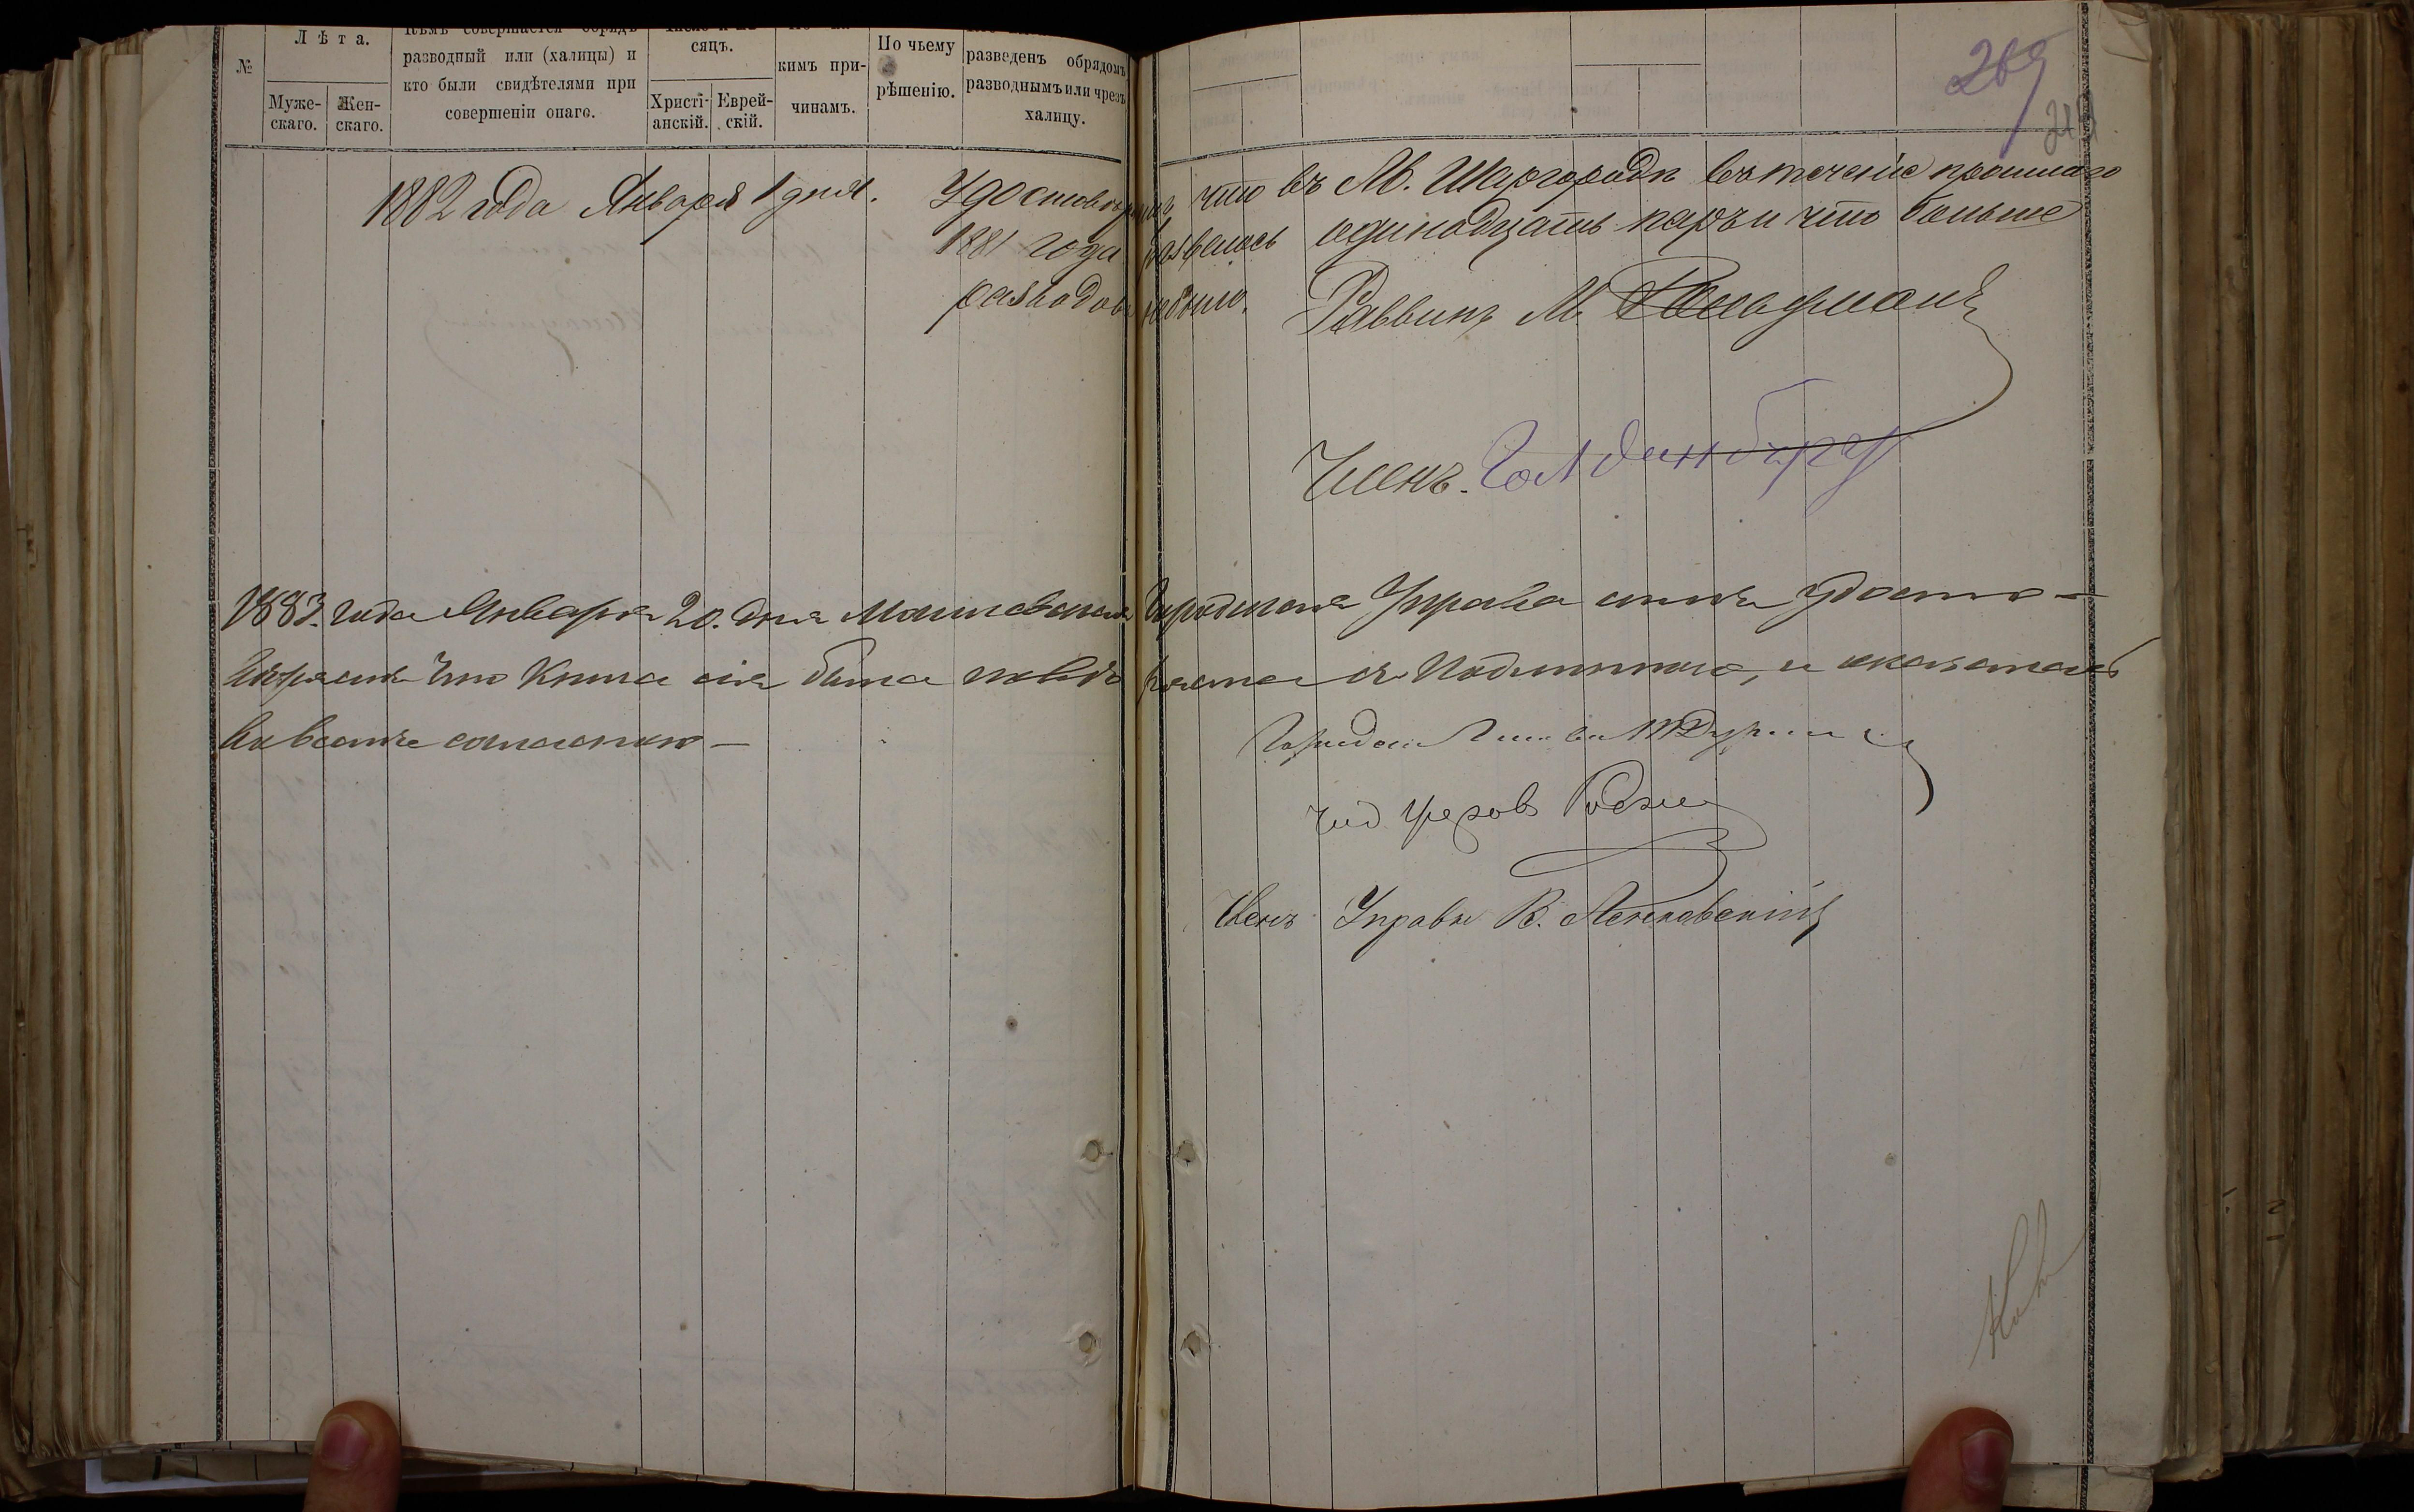 №
Лѣта.
Муже-
скаго.
Жен-
скаго.
Кѣмъ совершается обрядъ
разводный или (халицы) и
кто были свидѣтелями при
совершеніи онаго.
сяцъ.
Христі-
анскій.
Еврей-
скій.
кимъ при-
чинамъ.
По чьему
рѣшенію.
разведенъ обрядомъ
разводнымъ или чрезъ
халицу.
269
1882 года Января 1 дня. Удостовѣряемъ что въ М. Шаргородѣ въ теченіе прошлаго
1881 года развелось одинадцать паръ и что больше
разводовъ небыло. Раввинъ М.
Членъ. Голденбергъ
1883. года Января 20. дня Могилевская Городская Управа симъ удосто-
вѣряетъ что книга сія была повѣряема съ подлинною, и оказалась
во всемъ согласною —
Членъ Управы В.